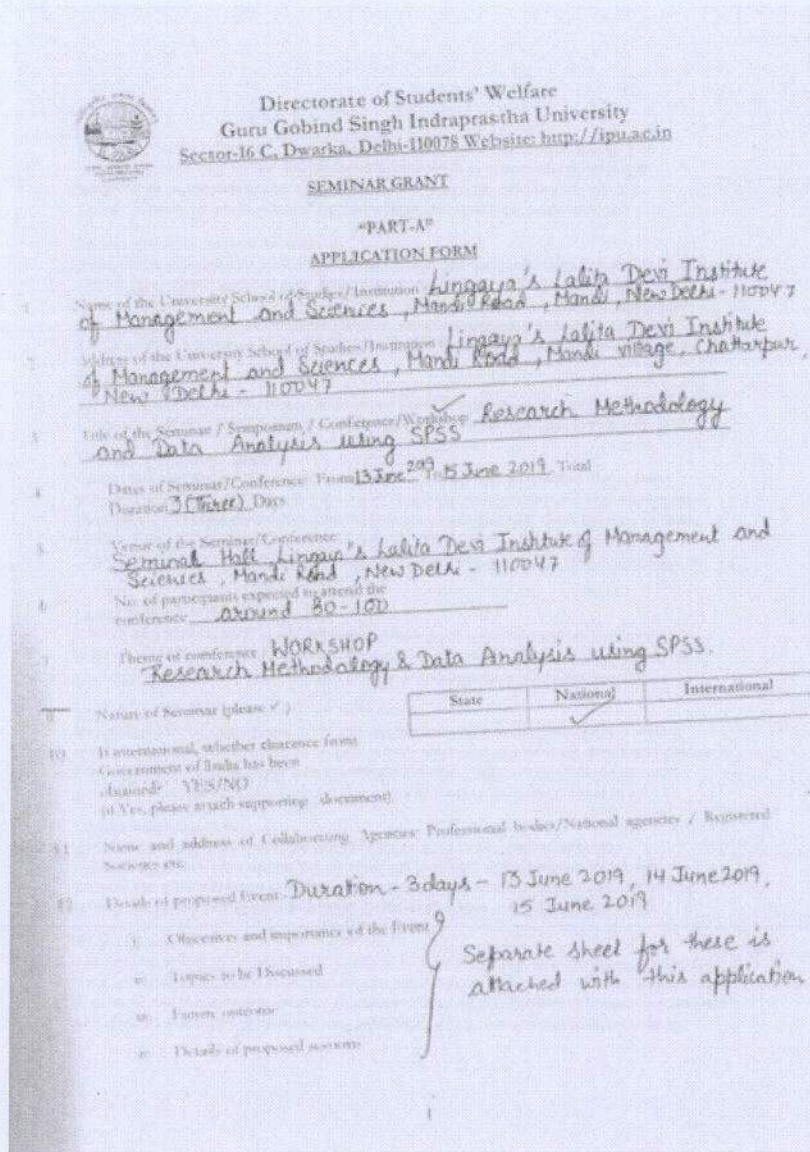 Directorate of Students' Welfare
Guru Gobind Singh Indraprastha University
Sector-16 C, Dwarka, Delhi-110078 Website: http://ipu.ac.in
SEMINAR GRANT
"PART-A"
APPLICATION FORM
Name of the University School of Studies/Institution Lingaya's Lalita Devi Institute
of Management and Sciences, Mandi Road, Mandi, New Delhi - 110047
Address of the University School of Studies/Institution Lingaya's Lalita Devi Institute
of Management and Sciences, Mandi Road, Mandi village, Chattarpur,
New Delhi - 110047
Title of the Seminar / Symposium / Conference/Workshop ✓ Research Methodology
and Data Analysis using SPSS
Dates of Seminar/Conference: From 13 June 2019 To 15 June 2019 Total
Duration 3 (Three) Days
Venue of the Seminar/Conference
Seminar Hall Lingaya's Lalita Devi Institute of Management and
Sciences, Mandi Road, New Delhi - 110047
No. of participants expected to attend the
conference around 80-100
Theme of conference WORKSHOP
Research Methodology & Data Analysis using SPSS.
Nature of Seminar (please ✓) State National International
✓
10 If international, whether clearence from
Government of India has been
obtained? YES/NO
(if Yes, please attach supporting document)
11 Name and address of Collaborating Agencies Professional bodies/National agencies / Registered
Societies etc
12 Details of proposed Event Duration - 3 days - 13 June 2019, 14 June 2019,
15 June 2019
i Objectives and importance of the Event
Separate sheet for these is
ii Topics to be Discussed
attached with this application
outcome
Details of proposed sessions
1